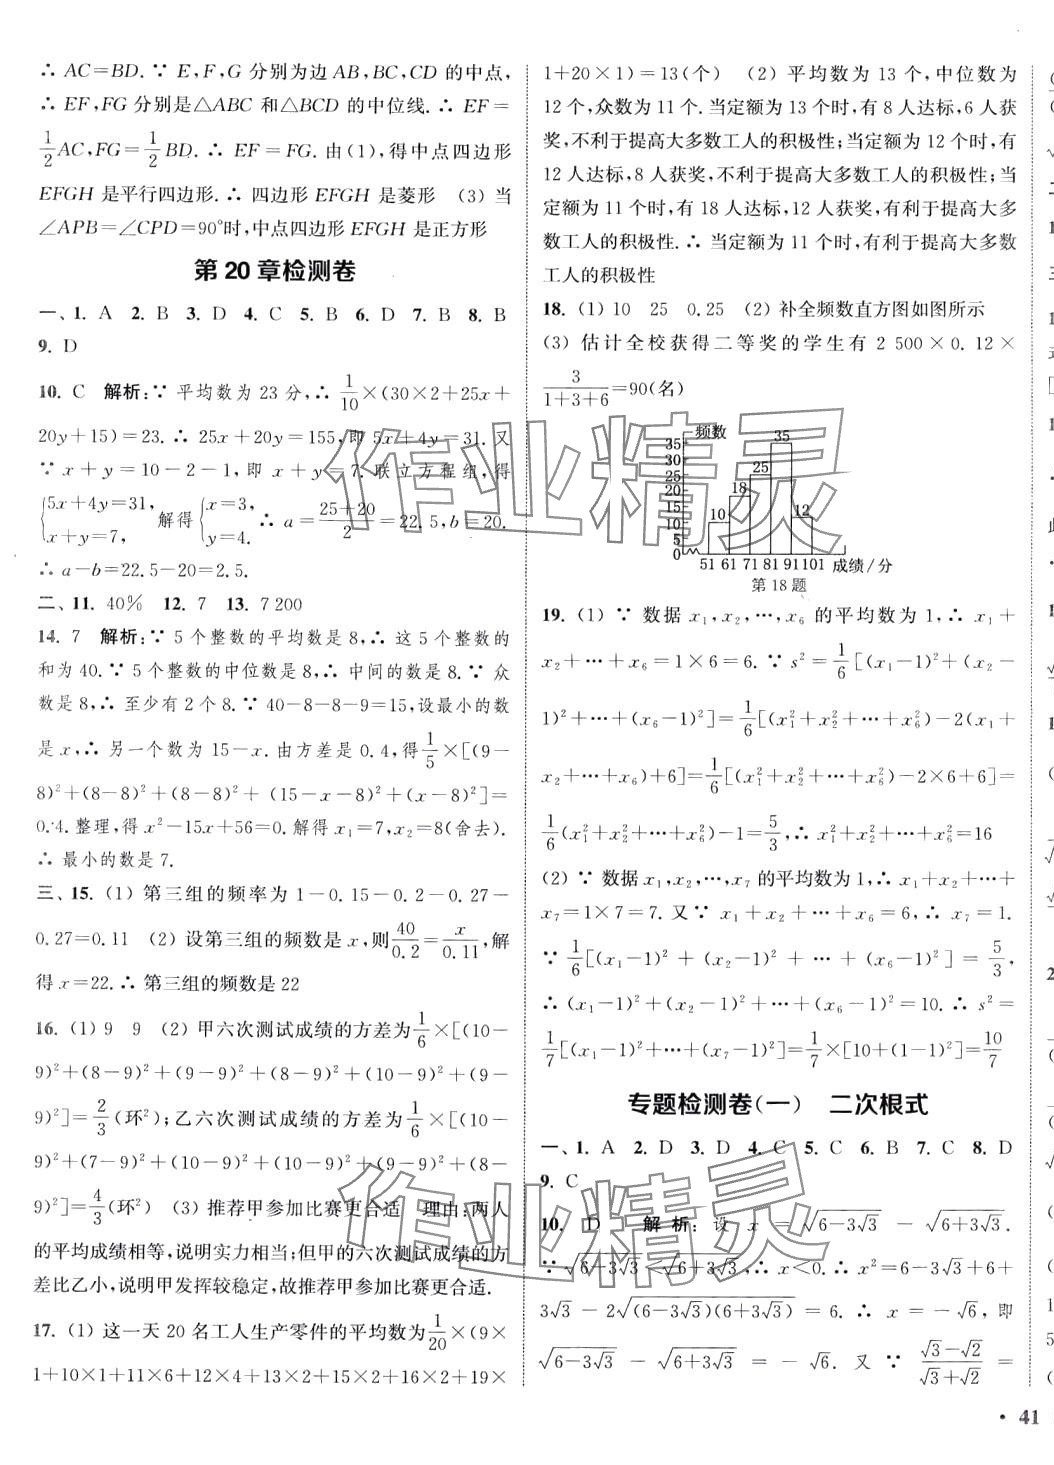 ∴ AC=BD. ∵ E,F,G 分别为边 AB,BC,CD 的中点,
∴ EF,FG 分别是△ABC 和△BCD 的中位线. ∴ EF=
1/2 AC,FG=1/2 BD. ∴ EF=FG. 由(1),得中点四边形
EFGH 是平行四边形. ∴ 四边形 EFGH 是菱形 (3) 当
∠APB=∠CPD=90°时,中点四边形 EFGH 是正方形
第 20 章检测卷
一、1. A 2. B 3. D 4. C 5. B 6. D 7. B 8. B
9. D
10. C 解析:∵ 平均数为 23 分,∴ 1/10×(30×2+25x+
20y+15)=23. ∴ 25x+20y=155,即 5x+4y=31. 又
∵ x+y=10-2-1,即 x+y=7. 联立方程组,得
{5x+4y=31, x+y=7, 解得 {x=3, y=4. ∴ a=(25+20)/2=22.5,b=20.
∴ a-b=22.5-20=2.5.
二、11. 40% 12. 7 13. 7 200
14. 7 解析:∵ 5 个整数的平均数是 8,∴ 这 5 个整数的
和为 40. ∵ 5 个整数的中位数是 8,∴ 中间的数是 8. ∵ 众
数是 8,∴ 至少有 2 个 8. ∵ 40-8-8-9=15,设最小的数
是 x,∴ 另一个数为 15-x. 由方差是 0.4,得 1/5×[(9-
8)²+(8-8)²+(8-8)²+(15-x-8)²+(x-8)²]=
0.4. 整理,得 x²-15x+56=0. 解得 x₁=7,x₂=8(舍去).
∴ 最小的数是 7.
三、15. (1) 第三组的频率为 1-0.15-0.2-0.27-
0.27=0.11 (2) 设第三组的频数是 x,则 40/0.2=x/0.11,解
得 x=22. ∴ 第三组的频数是 22
16. (1) 9 9 (2) 甲六次测试成绩的方差为 1/6×[(10-
9)²+(8-9)²+(9-9)²+(8-9)²+(10-9)²+(9-
9)²]=2/3(环²);乙六次测试成绩的方差为 1/6×[(10-
9)²+(7-9)²+(10-9)²+(10-9)²+(9-9)²+(8-
9)²]=4/3(环²) (3) 推荐甲参加比赛更合适 理由:两人
的平均成绩相等,说明实力相当;但甲的六次测试成绩的方
差比乙小,说明甲发挥较稳定,故推荐甲参加比赛更合适.
17. (1) 这一天 20 名工人生产零件的平均数为 1/20×(9×
1+10×1+11×6+12×4+13×2+15×2+16×2+19×
1+20×1)=13(个) (2) 平均数为 13 个,中位数为
12 个,众数为 11 个. 当定额为 13 个时,有 8 人达标,6 人获
奖,不利于提高大多数工人的积极性;当定额为 12 个时,有
12 人达标,8 人获奖,不利于提高大多数工人的积极性;当
定额为 11 个时,有 18 人达标,12 人获奖,有利于提高大多
数工人的积极性. ∴ 当定额为 11 个时,有利于提高大多数
工人的积极性
18. (1) 10 25 0.25 (2) 补全频数直方图如图所示
(3) 估计全校获得二等奖的学生有 2 500×0.12×
3/(1+3+6)=90(名)
频数
35
30
25
20
15
10
5
0
10
18
25
35
12
51 61 71 81 91 101 成绩/分
第 18 题
19. (1) ∵ 数据 x₁,x₂,…,x₆ 的平均数为 1,∴ x₁+
x₂+…+x₆=1×6=6. ∵ s²=1/6[(x₁-1)²+(x₂-
1)²+…+(x₆-1)²]=1/6[(x₁²+x₂²+…+x₆²)-2(x₁+
x₂+…+x₆)+6]=1/6[(x₁²+x₂²+…+x₆²)-2×6+6]=
1/6(x₁²+x₂²+…+x₆²)-1=5/3,∴ x₁²+x₂²+…+x₆²=16
(2) ∵ 数据 x₁,x₂,…,x₇ 的平均数为 1,∴ x₁+x₂+…+
x₇=1×7=7. 又∵ x₁+x₂+…+x₆=6,∴ x₇=1.
∵ 1/6[(x₁-1)²+(x₂-1)²+…+(x₆-1)²]=5/3,
∴ (x₁-1)²+(x₂-1)²+…+(x₆-1)²=10. ∴ s²=
1/7[(x₁-1)²+…+(x₇-1)²]=1/7×[10+(1-1)²]=10/7
专题检测卷(一) 二次根式
一、1. A 2. D 3. D 4. C 5. C 6. B 7. C 8. D
9. C
10. D 解析:设 x=√(6-3√3)-√(6+3√3).
∵ √(6-3√3)<√(6+3√3),∴ x<0. ∴ x²=6-3√3+6+
3√3-2√((6-3√3)(6+3√3))=6. ∴ x=-√6,即
√(6-3√3)-√(6+3√3)=-√6. 又∵ (√3-√2)/(√3+√2)=
• 41
作业精灵
作业精灵